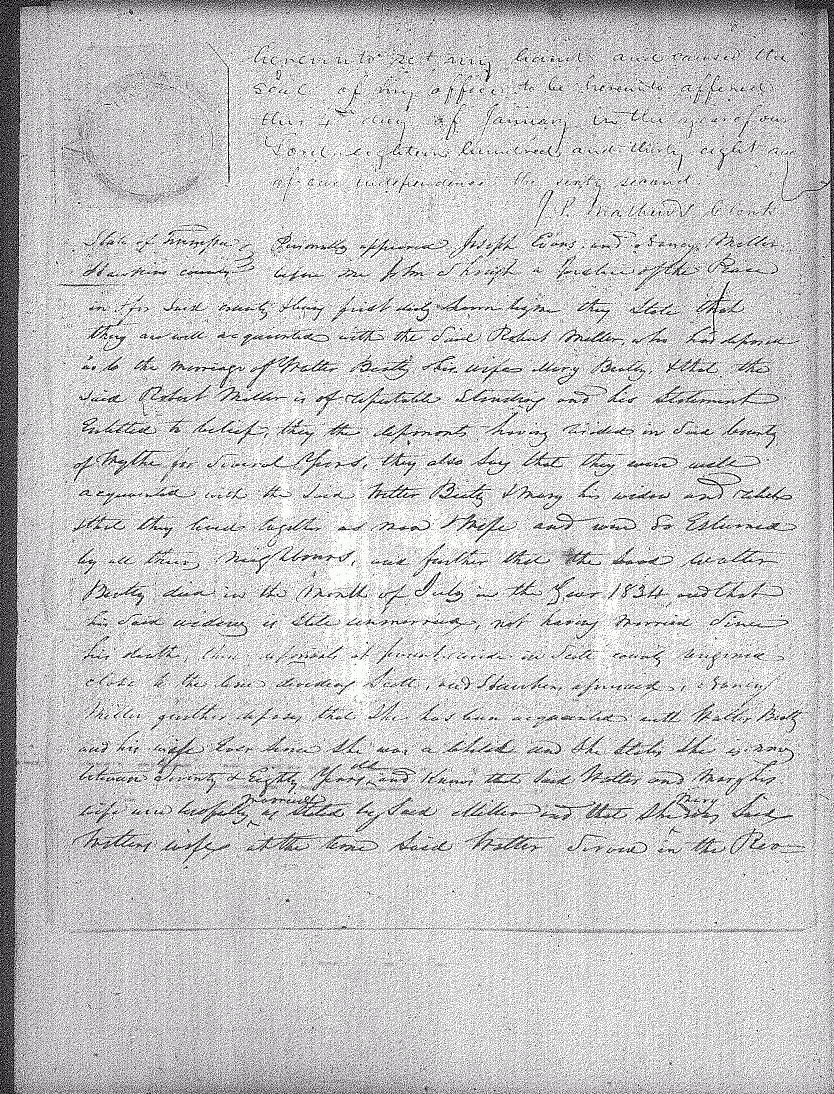 hereunto set my hand and caused the
Seal of my office to be hereunto affixed
this 4th day of January in the year of our
Lord eighteen hundred and thirty eight and
of our independence the sixty second
J. P. Mathews Clerk
State of Tennessee Personally appeared Joseph Evans and Nancy Miller
Hawkins county before me John a Justice of the Peace
in & for Said county & being first duly Sworn they State that
they are well acquainted with the Said Robert Miller, who has deposed
as to the marriage of Walter Beaty & his wife Mary Beaty, & that the
Said Robert Miller is of reputable Standing and his Statement
Entitled to belief, they the deponents having resided in Said County
of Wythe for Several Years, they also Say that they were well
acquainted with the Said Walter Beaty & Mary his widow and
that they lived together as man & wife and were So Esteemed
by all their neighbours, and further that the Said Walter
Beaty died in the Month of July in the Year 1834 and that
his Said widow is Still unmarried, not having married Since
his death, these deponents at present reside in Scott county
close to the line dividing Scott, and Hawkins aforesaid, Nancy
Miller further deposes that She has been acquainted with Walter Beaty
and his wife Ever Since She was a Child and She States She is now
between Seventy & Eighty Years old and knows that Said Walter and Mary his
wife were lawfully married as Stated by Said Miller and that She Mary was Said
Walters wife at the time Said Walter Served in the Rev-